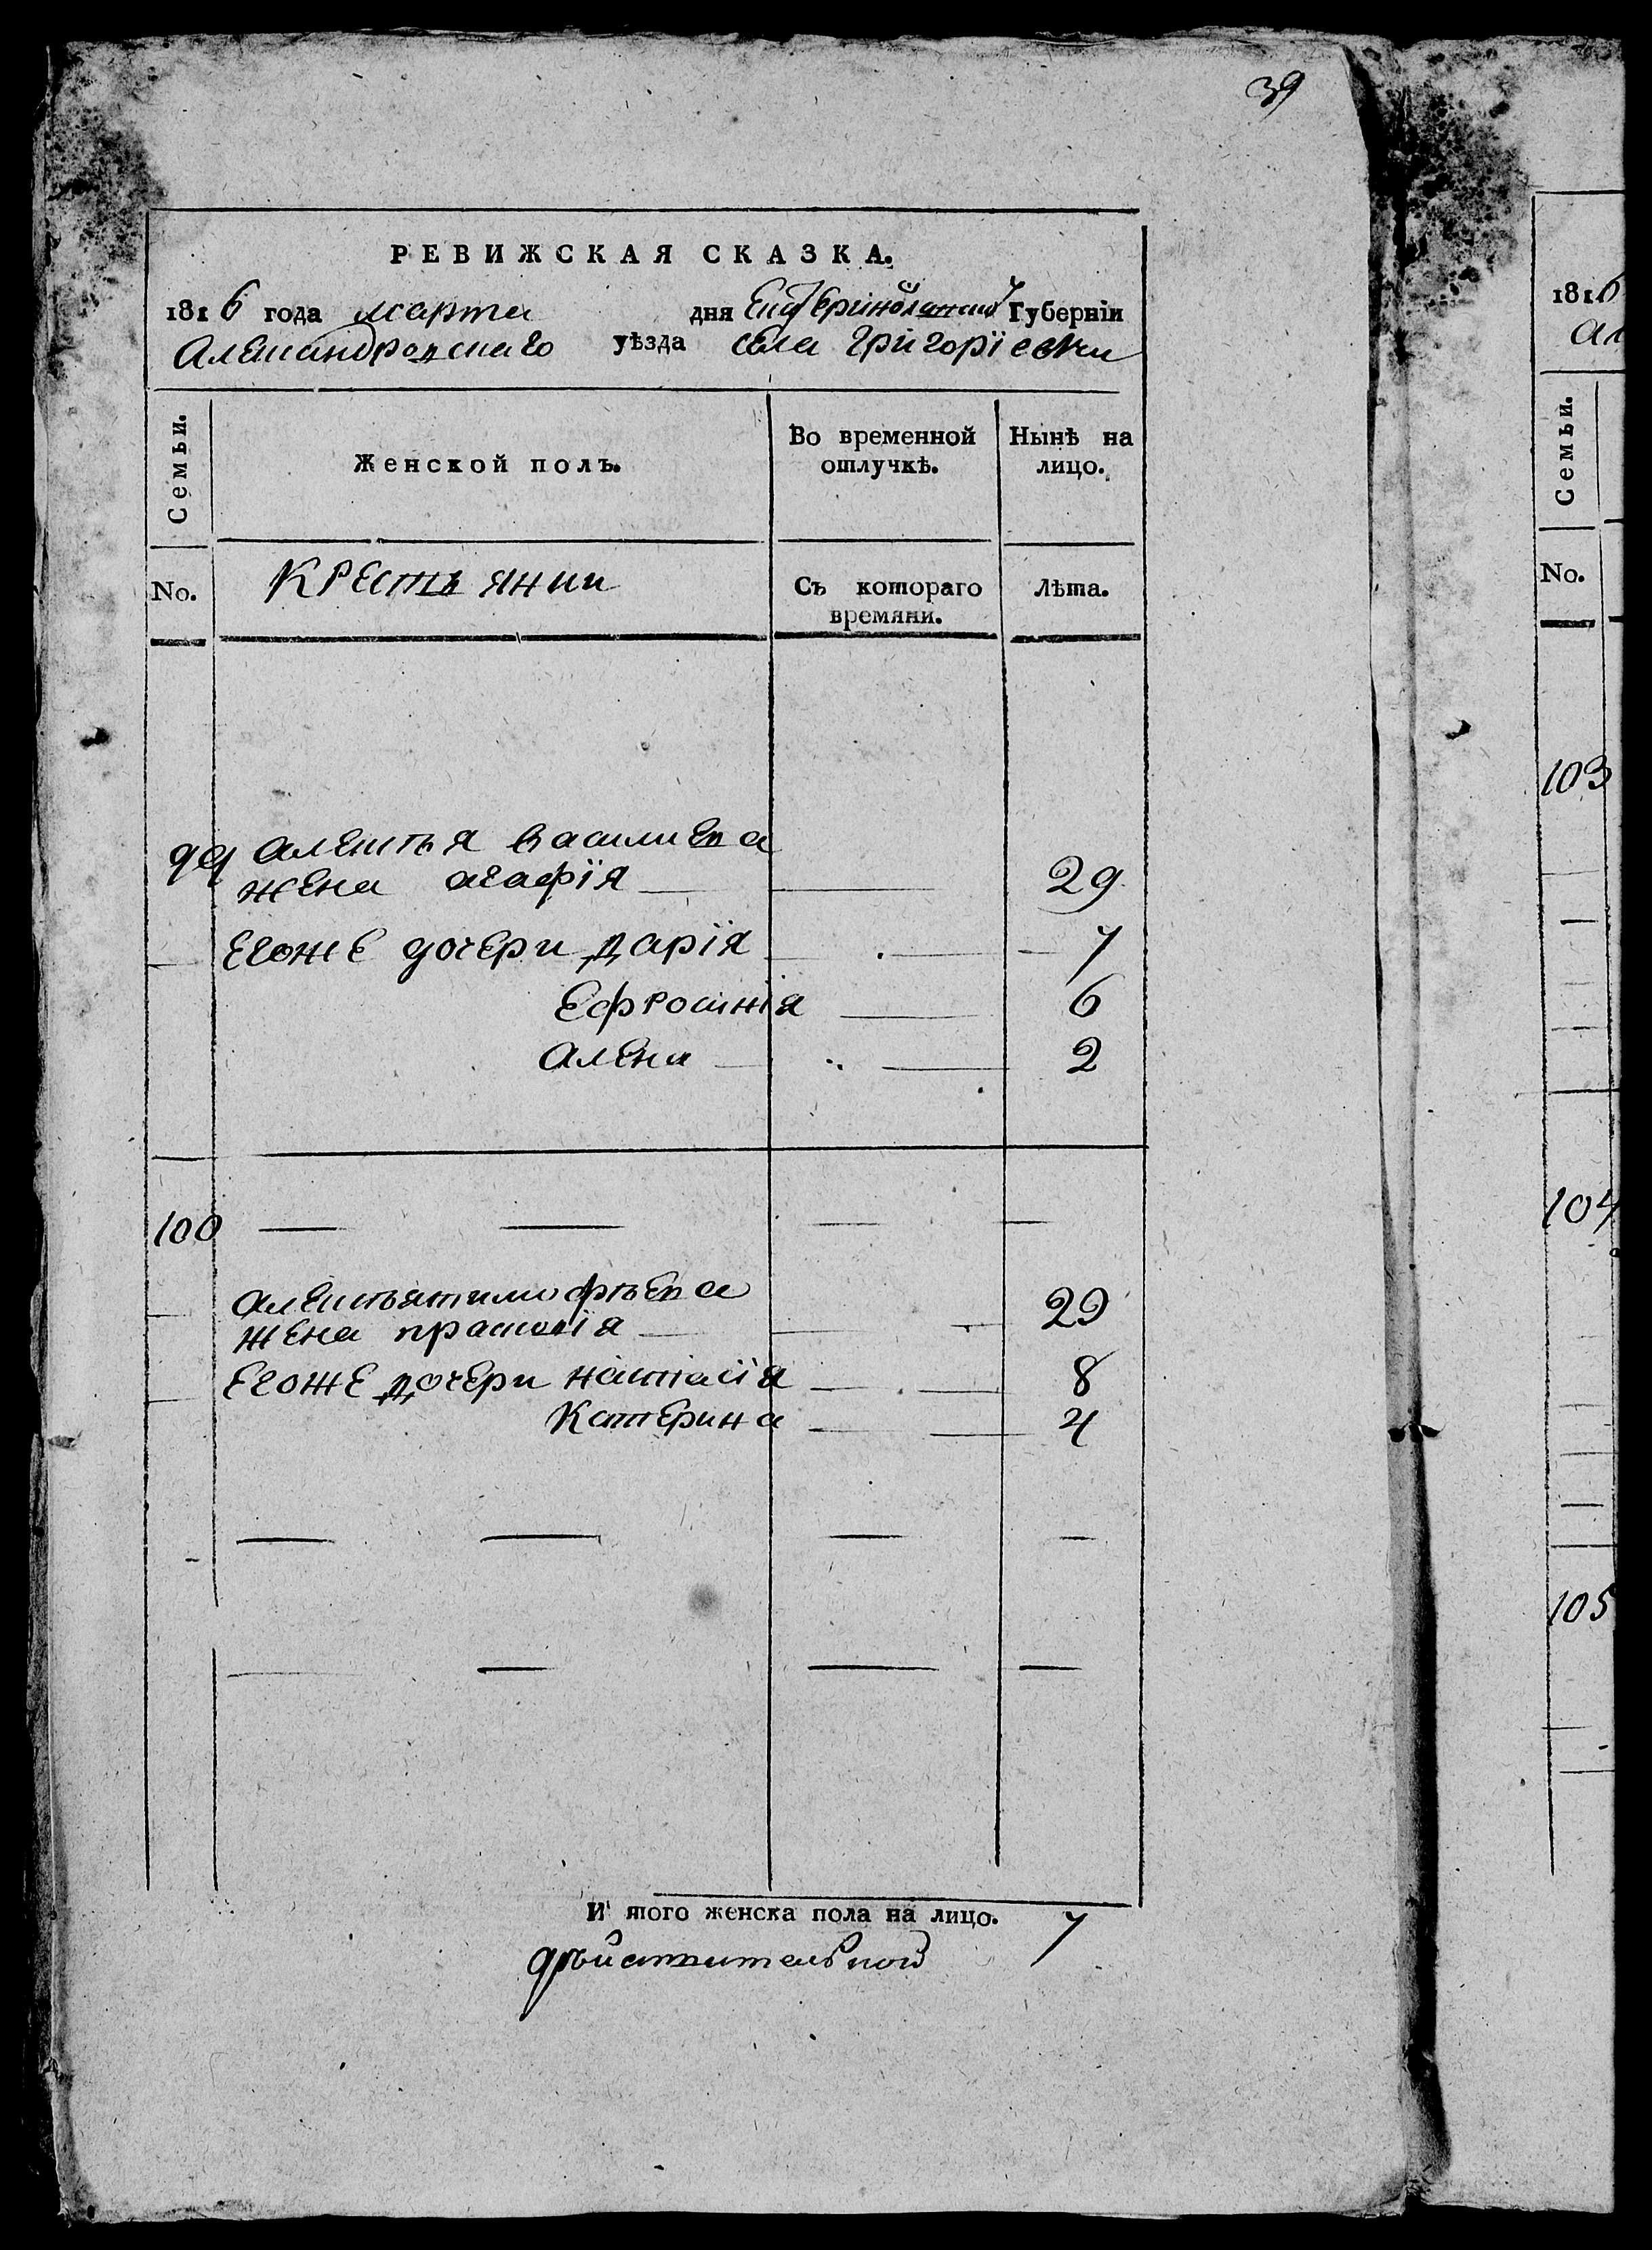 39
РЕВИЖСКАЯ СКАЗКА.
1816 года марта дня Екатеринославской Губерніи
Александровскаго уѣзда села Григоріевки
Семьи.
Женской полъ.
Во временной отлучкѣ.
Нынѣ на лицо.
No.
Крестьянки
Съ котораго времяни.
Лѣта.
99 алексѣя василиева
жена агафїя 29
егоже дочери дарїя 7
Ефросинїя 6
алена 2
100
алексѣя тимофѣева
жена прасковїя 29
егоже дочери настасїя 8
Катерина 4
И того женска пола на лицо. 7
дѣйствительной
1816
Ал
Семьи.
No.
103
104
105